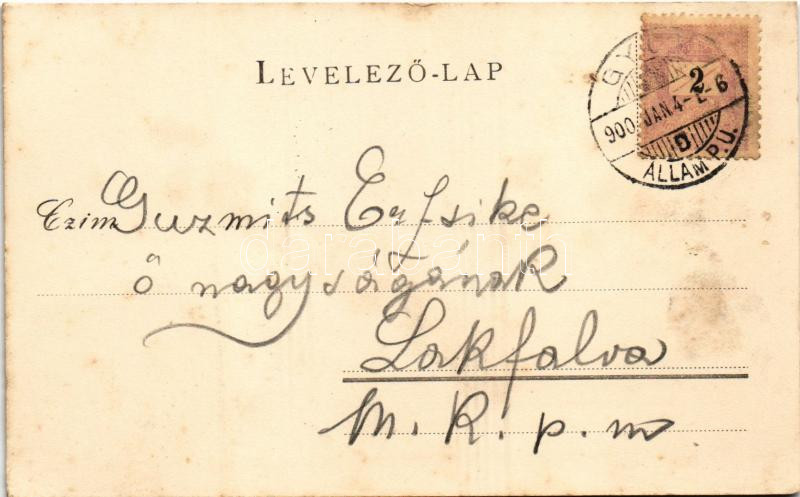 LEVELEZŐ-LAP
2
900 JAN. 4 - 6
D
ÁLLAM P.U.
Czim Guzmits Erzsike
ő nagyságának
Lakfalva
M. K. p. m